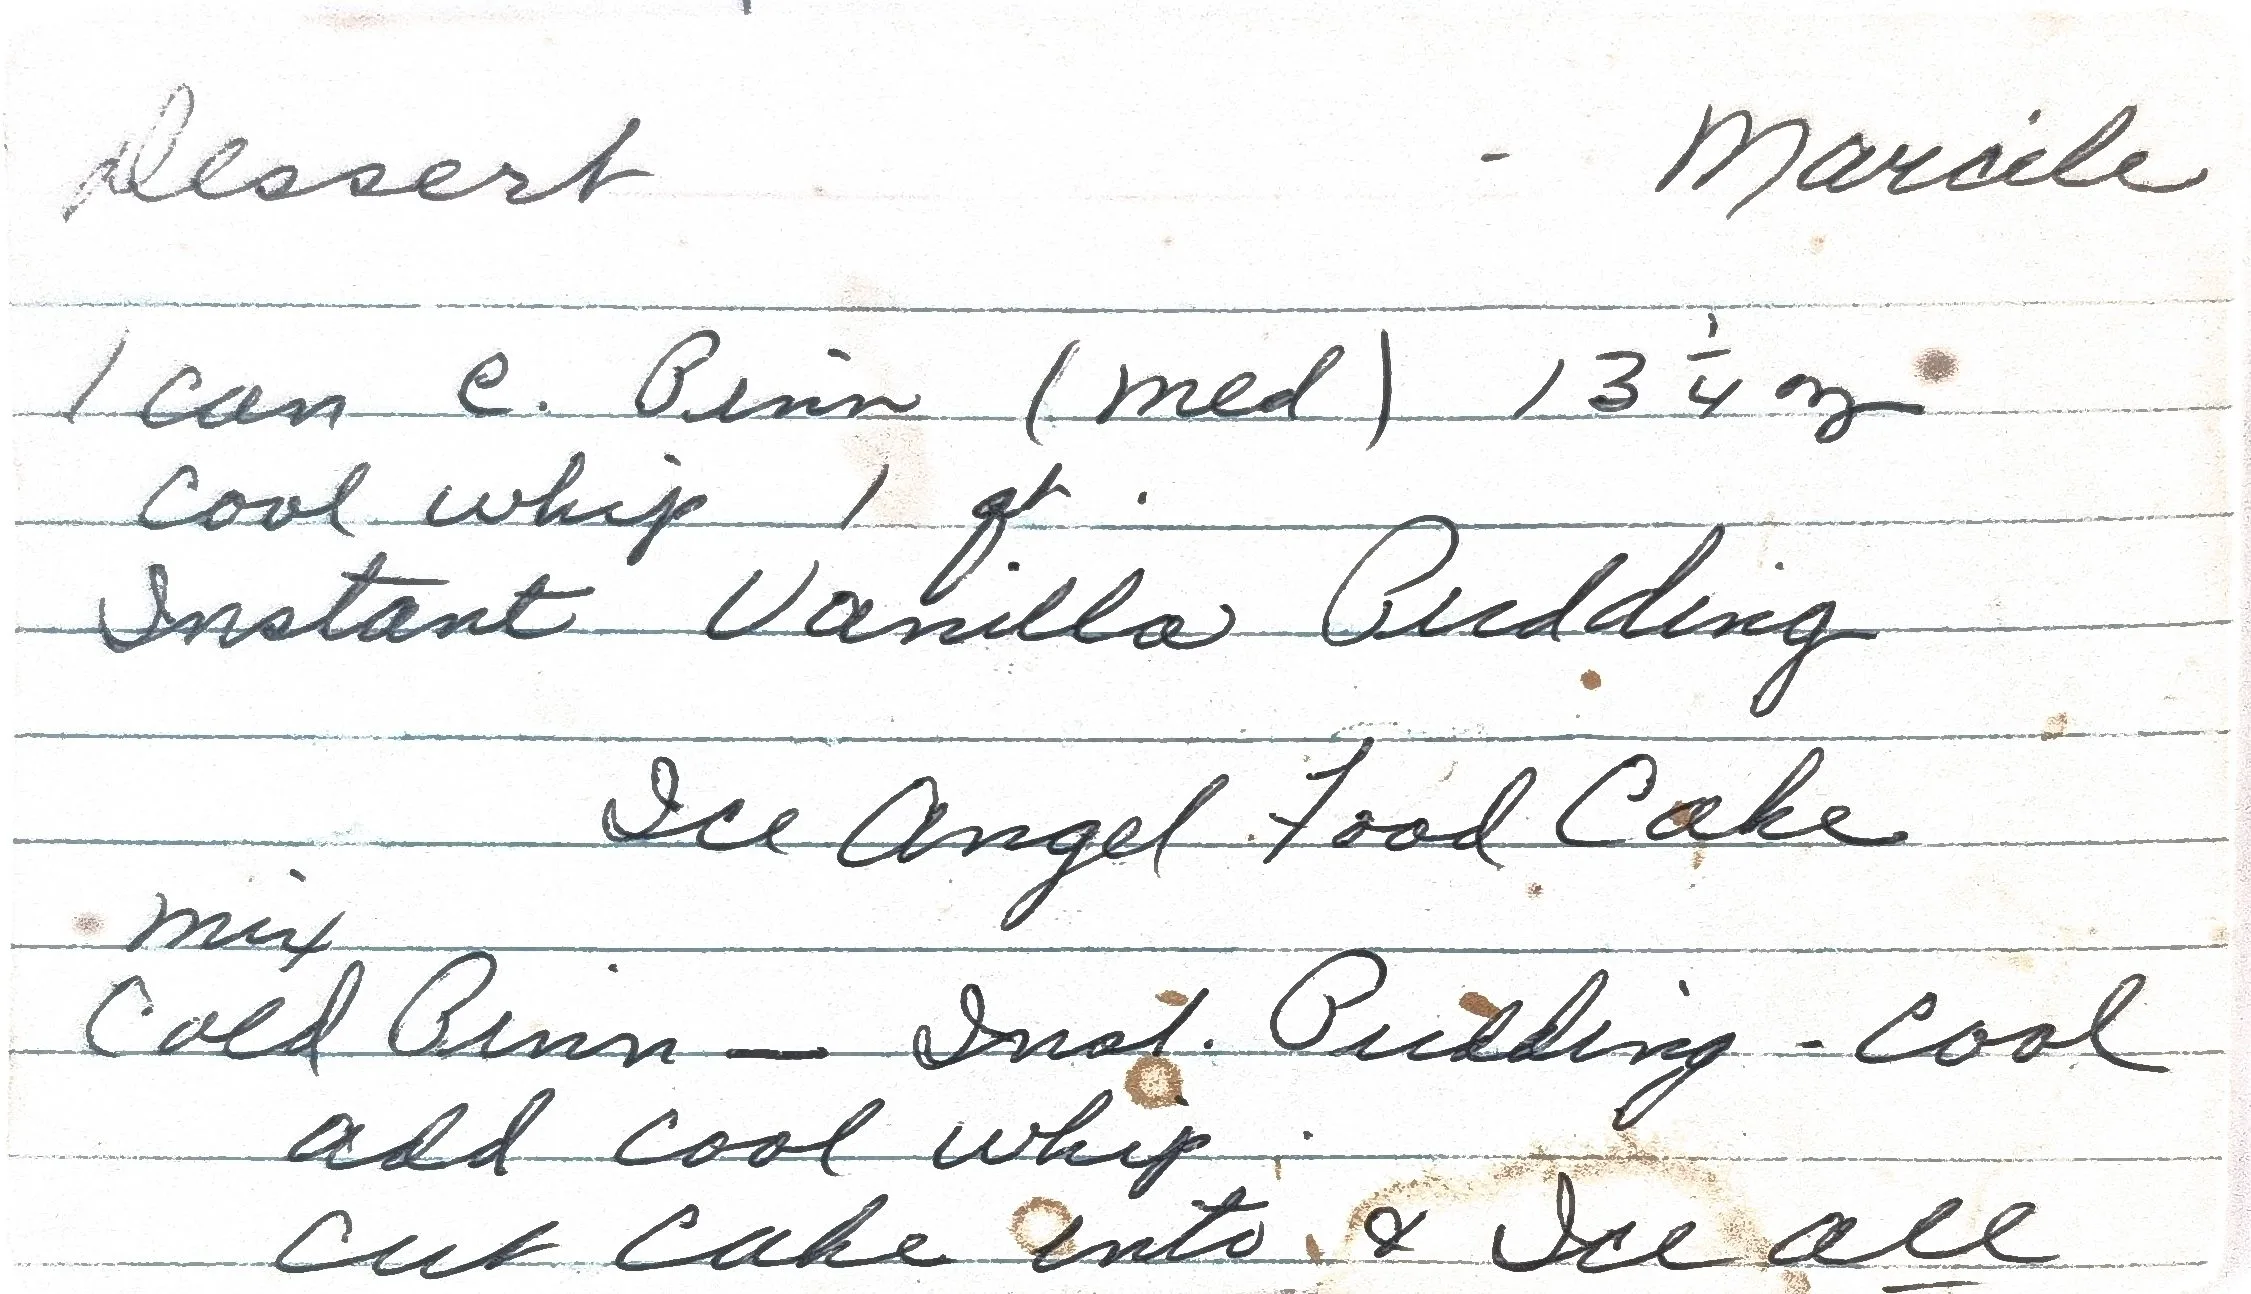 Dessert - Marcile
1 can C. Pinn (med) 13 1/4 oz
Cool whip 1 qt.
Instant Vanilla Pudding
Ice Angel Food Cake
mix
Cold Pinn — Inst. Pudding - cool
add cool whip.
Cut Cake into & Ice all